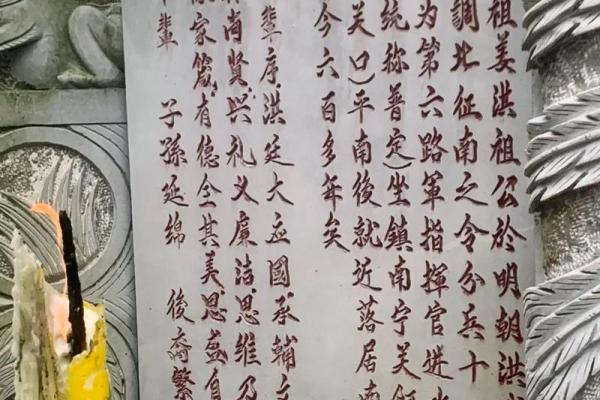 祖姜洪祖公於明朝洪
調北征南之令分兵十
为第六路軍指揮官进
统称普定)坐鎮南宁关
关口)平南後就近落居南
今六百多年矣
輩序洪廷大应國承輔
尚賢兴礼义廉洁思维乃
家箴有德全其美恩益自
輩 子孫延绵 後裔繁